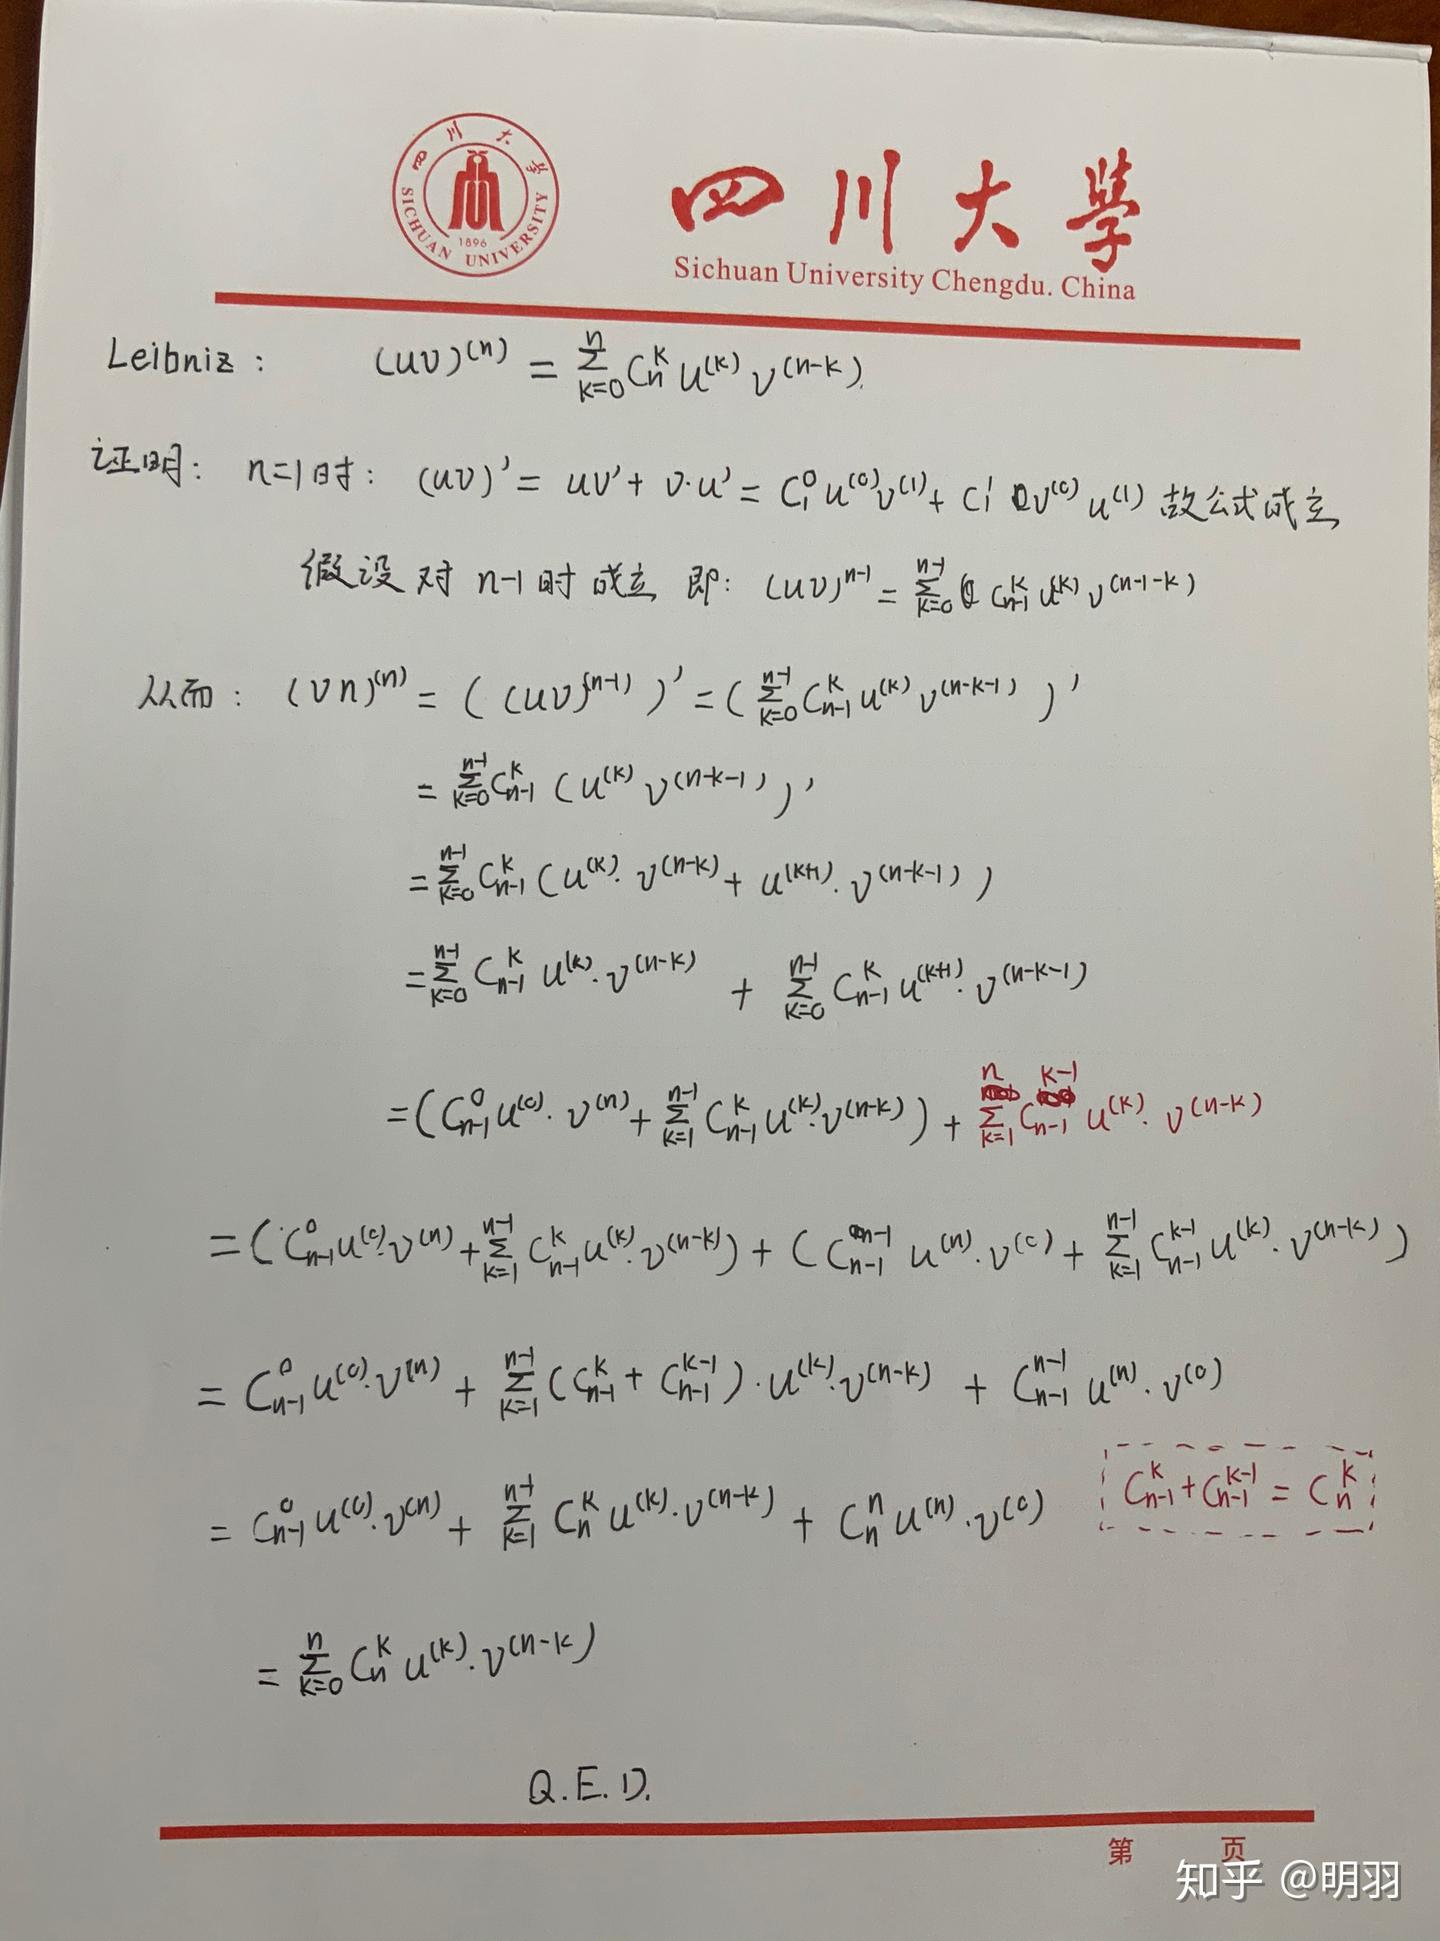 四川大学
SICHUAN UNIVERSITY
1896
四川大學
Sichuan University Chengdu. China
Leibniz: (uv)^(n) = Σ_{k=0}^{n} C_n^k u^(k) v^(n-k).
证明: n=1时: (uv)' = uv' + v·u' = C_1^0 u^(0) v^(1) + C_1^1 v^(0) u^(1) 故公式成立
假设对 n-1时成立 即: (uv)^{n-1} = Σ_{k=0}^{n-1} C_{n-1}^k u^(k) v^(n-1-k)
从而: (vn)^(n) = ((uv)^(n-1))' = (Σ_{k=0}^{n-1} C_{n-1}^k u^(k) v^(n-k-1))'
= Σ_{k=0}^{n-1} C_{n-1}^k (u^(k) v^(n-k-1))'
= Σ_{k=0}^{n-1} C_{n-1}^k (u^(k)·v^(n-k) + u^(k+1)·v^(n-k-1))
= Σ_{k=0}^{n-1} C_{n-1}^k u^(k)·v^(n-k) + Σ_{k=0}^{n-1} C_{n-1}^k u^(k+1)·v^(n-k-1)
= (C_{n-1}^0 u^(0)·v^(n) + Σ_{k=1}^{n-1} C_{n-1}^k u^(k)·v^(n-k)) + Σ_{k=1}^{n} C_{n-1}^{k-1} u^(k)·v^(n-k)
= (C_{n-1}^0 u^(0)·v^(n) + Σ_{k=1}^{n-1} C_{n-1}^k u^(k)·v^(n-k)) + (C_{n-1}^{n-1} u^(n)·v^(0) + Σ_{k=1}^{n-1} C_{n-1}^{k-1} u^(k)·v^(n-k))
= C_{n-1}^0 u^(0)·v^(n) + Σ_{k=1}^{n-1} (C_{n-1}^k + C_{n-1}^{k-1})·u^(k)·v^(n-k) + C_{n-1}^{n-1} u^(n)·v^(0)
= C_{n-1}^0 u^(0)·v^(n) + Σ_{k=1}^{n-1} C_n^k u^(k)·v^(n-k) + C_n^n u^(n)·v^(0) C_{n-1}^k + C_{n-1}^{k-1} = C_n^k
= Σ_{k=0}^{n} C_n^k u^(k)·v^(n-k)
Q.E.D.
第 页
知乎 @明羽